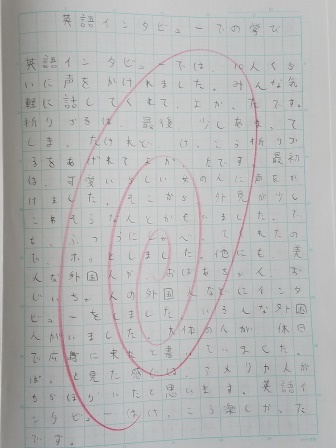 英語インタビューでの学び
英語インタビューでは、10人くら
いに声をかけれました。みんな気
軽に話してくれて、よかったです。
折りづるは、最後、少しあまって
しまったけれど、けっこう折りづ
るをあげれてよかったです。最初
は、可愛いらしい女の人に声をか
けました。そこから、外見が少し
こわそうな人とかもいました。で
も、ふつうに 
で、ホッとしました。他にも、美
人な外国人か、おばあちゃん、お
じいちゃんの外国人などにインタ
ビューをしました。いろんな外国
人がいました。大体の人が、休日
で広島に来たと書いていました。
ぱっと見た感じは、アメリカ人が
多かったと思います。英語イ
ンタビューはけっこう楽しかった
です。